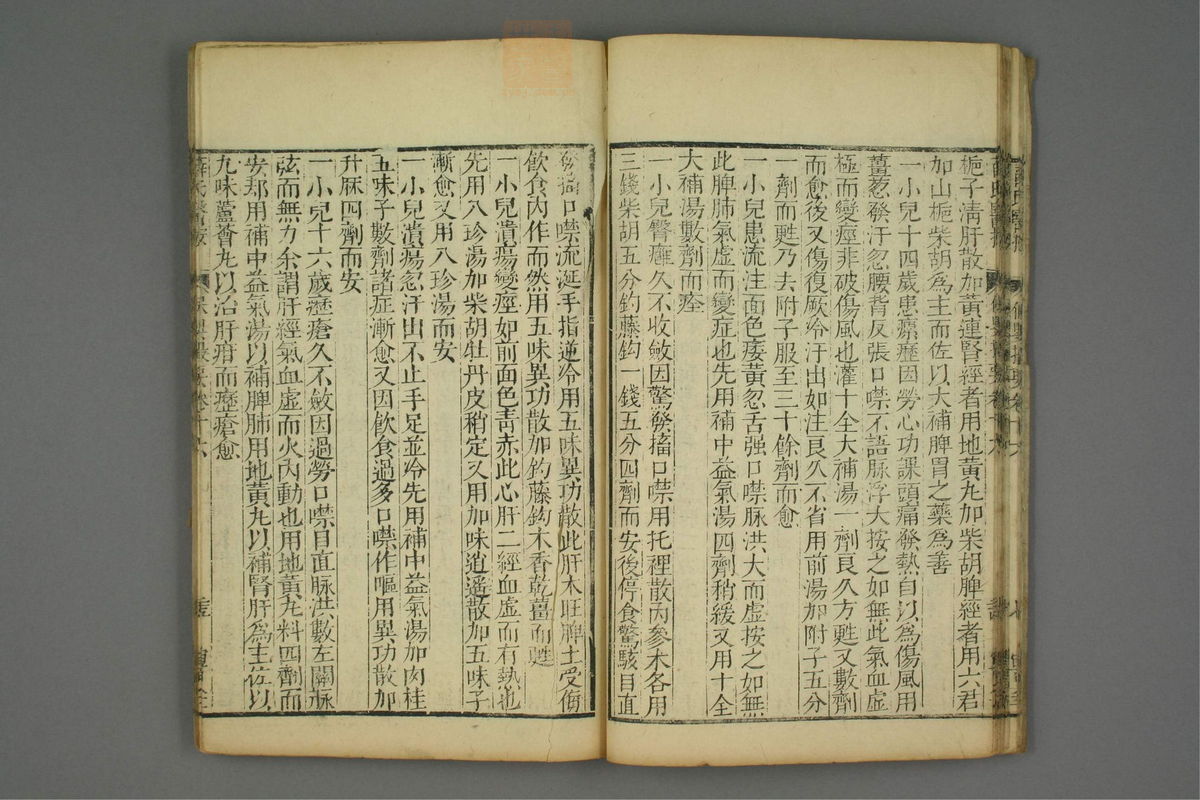 梔子清肝散加黃連腎經者用地黃丸加柴胡脾經者用六君
加山梔柴胡為主而佐以大補脾胃之藥為善
一小兒十四歲患瘰癧因勞心功課頭痛發熱自以為傷風用
薑葱發汗忽腰背反張口噤不語脉浮大按之如無此氣血虛
極而變痙非破傷風也灌十全大補湯一劑良久方甦又數劑
而愈後又傷復厥冷汗出如注良久不省用前湯加附子五分
一劑而甦乃去附子服至三十餘劑而愈
一小兒患流注面色痿黃忽舌强口噤脉洪大而虛按之如無
此脾肺氣虛而變症也先用補中益氣湯四劑稍緩又用十全
大補湯數劑而痊
一小兒臀癰久不收斂因驚發搐口噤用托裡散內參术各用
三錢柴胡五分釣藤鈎一錢五分四劑而安後停食驚駭目直
發搐口噤流涎手指逆冷用五味異功散此肝木旺脾土受侮
飲食內作而然用五味異功散加釣藤鈎木香乾薑而甦
一小兒潰瘍變痙如前面色青赤此心肝二經血虛而有熱也
先用八珍湯加柴胡牡丹皮稍定又用加味逍遥散加五味子
漸愈又用八珍湯而安
一小兒潰瘍忽汗出不止手足並冷先用補中益氣湯加肉桂
五味子數劑諸症漸愈又因飲食過多口噤作嘔用異功散加
升麻四劑而安
一小兒十六歲瘰瘡久不斂因過勞口噤目直脉洪數左關脉
弦而無力余謂肝經氣血虛而火內動也用地黃丸料四劑而
安却用補中益氣湯以補脾肺用地黃丸以補腎肝為主佐以
九味蘆薈丸以治肝疳而瘰瘡愈